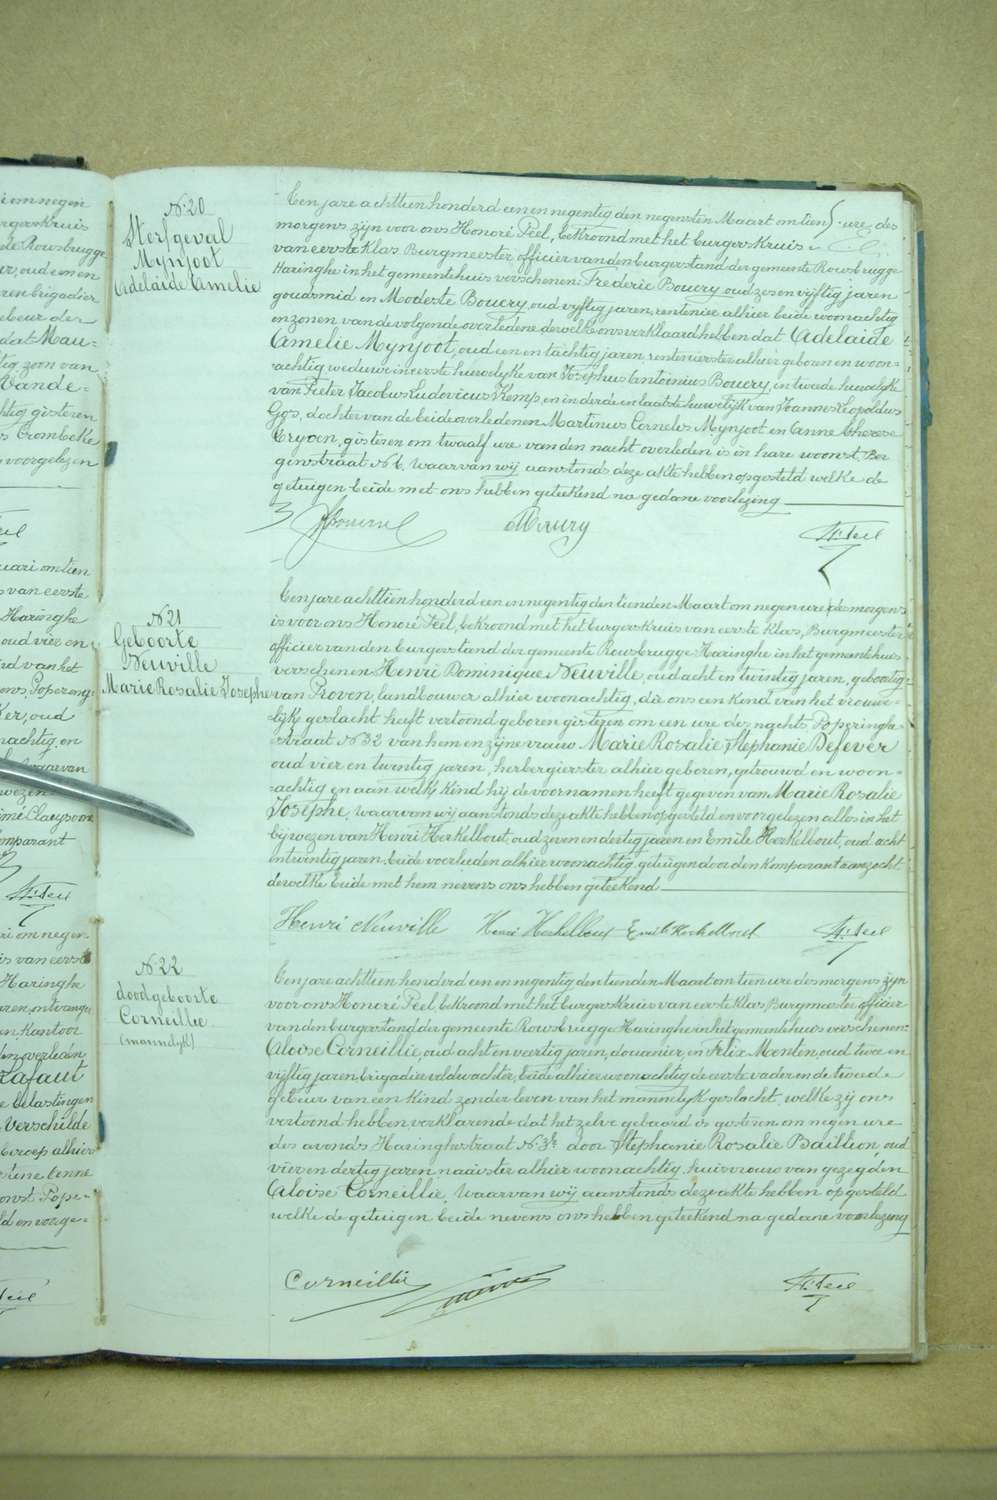 N. 20
Sterfgeval
Mynjoot
Adelaïde Amelie
Een jare achttien honderd een en negentig den negensten Maart om tien ure des
morgens zijn voor ons Honoré Peel, bekroond met het burgerskruis
van eerste klas Burgmeester, officier van den burgerstand der gemeente Rousbrugge
Haringhe in het gemeentehuis verschenen Frederic Bouery oud zes en vyftig jaren
goudsmid en Modeste Bouery, oud vyftig jaren, rentenier alhier beide woonachtig
en zonen van de volgende overledene dewelke ons verklaard hebben dat Adelaïde
Amelie Mynjoot, oud een en tachtig jaren, rentenierster alhier geboren en woon-
achtig weduwe in eerste huwelyke van Josephus Antonius Bouery, in tweede huwelijke
van Pieter Jacobus Ludovicus Kemp, en in derde en laatste huwelijk van Joannes Leopoldus
Gys, dochter van de beide overledenen Martinus Cornelus Mynjoot en Anne Therese
Cryoen, gisteren om twaalf ure van den nacht overleden is in hare woonst, Ber
genstraat No 6, waarvan wij aanstonds deze akte hebben opgesteld welke de
getuigen beide met ons hebben geteekend na gedane voorlezing
Hre Peel
N. 21
Geboorte
Neuville
Marie Rosalie Josephe
Een jare achttien honderd een en negentig den tienden Maart om negen ure des morgens
is voor ons Honoré Peel, bekroond met het burgerskruis van eerste klas, Burgmeester
officier van den burgerstand der gemeente Rousbrugge Haringhe in het gemeentehuis
verschenen Henri Dominique Neuville, oud acht en twintig jaren, geboortig
van Proven, landbouwer alhier woonachtig, die ons een kind van het vrouwe-
lijk geslacht heeft vertoond geboren gisteren om een ure des nachts, Poperinghe
straat No 32 van hem en zijne vrouw Marie Rosalie Stephanie Defever
oud vier en twintig jaren, herbergierster alhier geboren, getrouwd en woon-
achtig en aan welk kind hij de voornamen heeft gegeven van Marie Rosalie
Josephe, waarvan wij aanstonds deze akte hebben opgesteld en voorgelezen alles in het
bijwezen van Henri Herkelbout, oud zeven en dertig jaren en Emile Herkelbout, oud acht
en twintig jaren, beide voerlieden alhier woonachtig, getuigen door den komparant aanzocht
dewelke beide met hem nevens ons hebben geteekend
Henri Neuville Henri Herkelbout Emile Herkelbout Hre Peel
N. 22
doodgeboorte
Corneillie
(mannelyk)
Een jare achttien honderd een en negentig den tienden Maart om tien ure des morgens zijn
voor ons Honoré Peel, bekroond met het burgerskruis van eerste klas Burgmeester officier
van den burgerstand der gemeente Rousbrugge Haringhe in het gemeentehuis verschenen
Aloïse Corneillie, oud acht en veertig jaren, douanier, en Felix Menten, oud twee en
vijftig jaren brigadier veldwachter, beide alhier woonachtig de eerste vader en de tweede
gebuur van een kind zonder leven van het mannelijk geslacht, welke zij ons
vertoond hebben, verklarende dat het zelve gebaard is gisteren om negen ure
des avonds Haringhestraat No 3 door Stephanie Rosalie Baillieu, oud
vier en dertig jaren naaister alhier woonachtig, huisvrouw van gezegden
Aloïse Corneillie, waarvan wij aanstonds deze akte hebben opgesteld
welke de getuigen beide nevens ons hebben geteekend na gedane voorlezing
Corneillie
Hre Peel